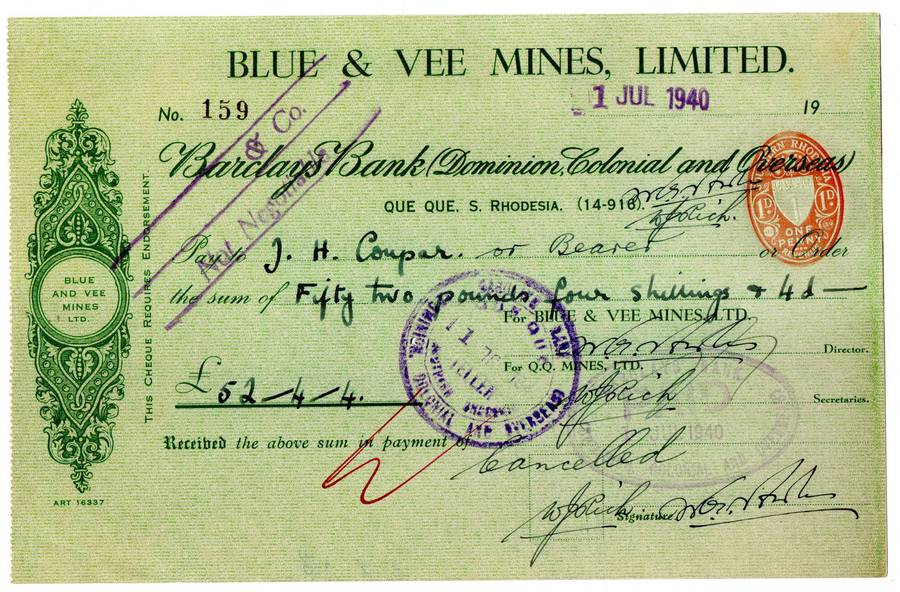 BLUE & VEE MINES, LIMITED.
No. 159
1 JUL 1940
19
& Co.
Not Negotiable
Barclays Bank (Dominion, Colonial and Overseas)
QUE QUE, S. RHODESIA. (14-916)
Pay J. H. Coupar. or Bearer or Order
the sum of Fifty two pounds, four shillings & 4d —
For BLUE & VEE MINES, LTD.
Director.
For Q.Q. MINES, LTD.
Secretaries.
£52-4-4.
Received the above sum in payment of
Cancelled
Signature
BLUE
AND VEE
MINES
LTD.
ART 16337
THIS CHEQUE REQUIRES ENDORSEMENT.
RHODESIA
1D
1D
ONE
PENNY
TELLER
COLONIAL AND OVERSEAS)
JUL 1940
AND